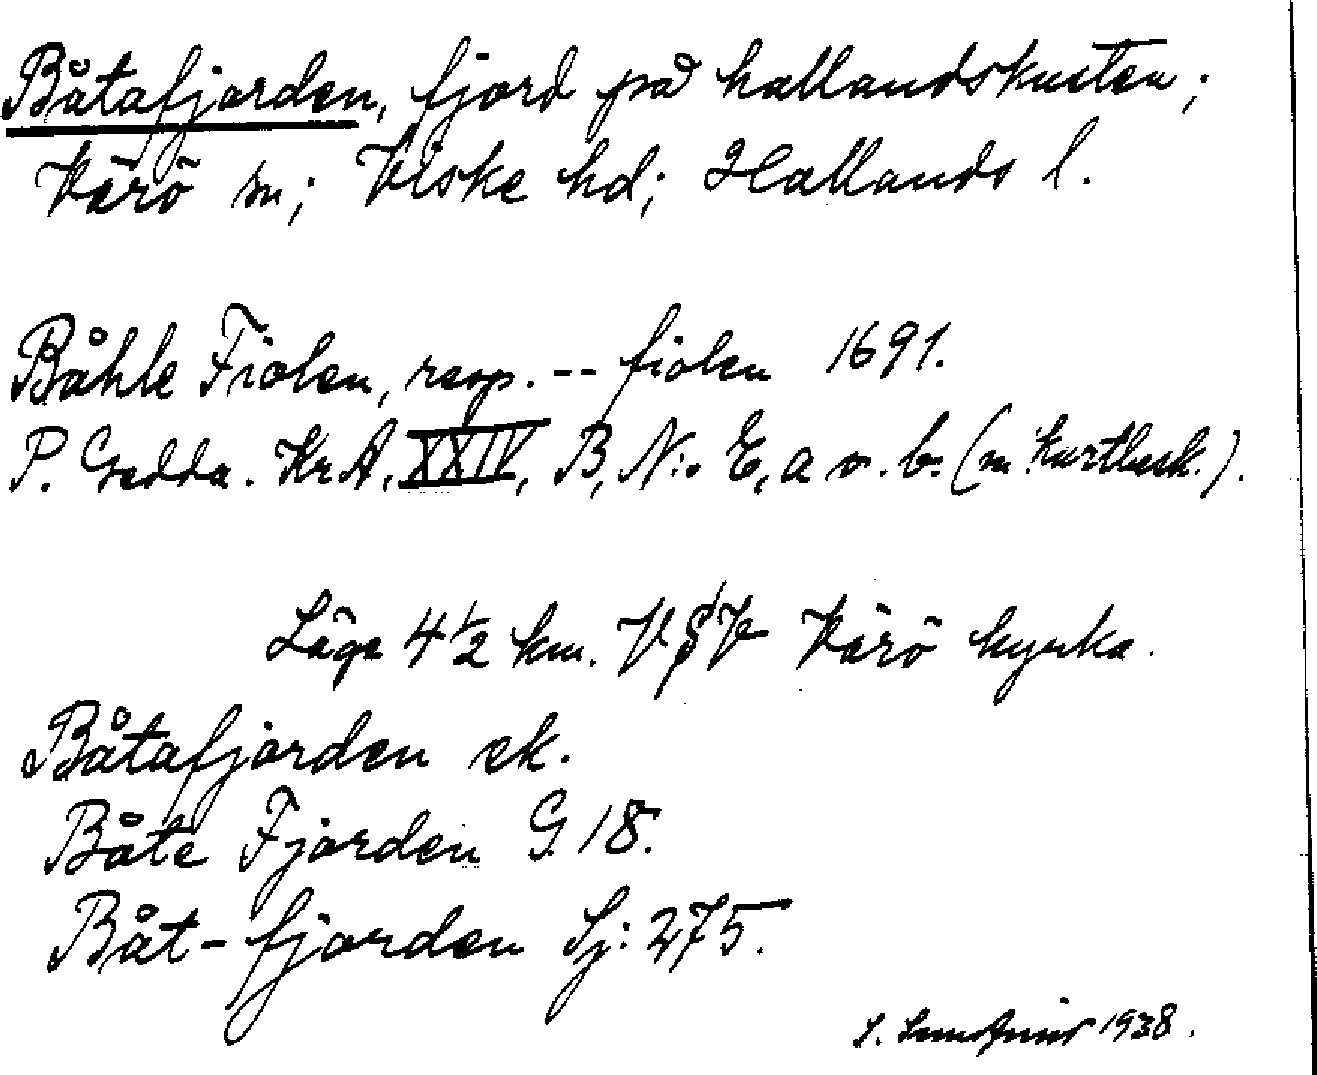 Båtafjorden, fjord på hallandskusten;
Värö sn; Viske hd; Hallands l.
Båhle Fiolen, resp. -- fiolen 1691.
P. Gedda. Kr.A, XXIV, B, N:o E, a o. b. (m kartbesk.).
Läge 4½ km. V Värö kyrka.
Båtafjorden ek.
Båte Fjorden G. 18.
Båt-fjorden Sj: 275.
S. 1938.